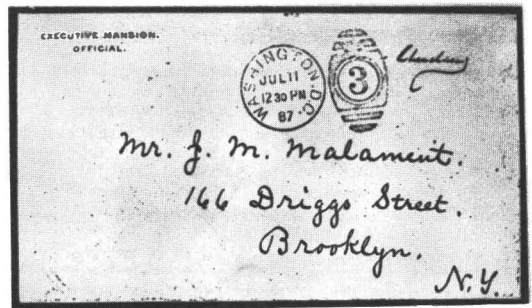 EXECUTIVE MANSION.
OFFICIAL.
WASHINGTON, D.C.
JUL 11
12 30 PM
87.
3
Mr. J. M. Malament.
166 Driggs Street.
Brooklyn.
N.Y.